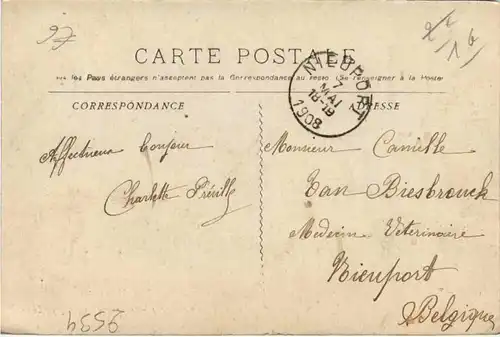 97
CARTE POSTALE
les Pays étrangers n'acceptent pas la Correspondance au recto (Se renseigner à la Poste
CORRESPONDANCE
ADRESSE
NIEUPORT
7
MAI
18-19
1908
Affectueux bonjour
Charlotte Préville
Monsieur Camille
Van Biesbrouck
Medecin Veterinaire
Nieuport
Belgique
2534